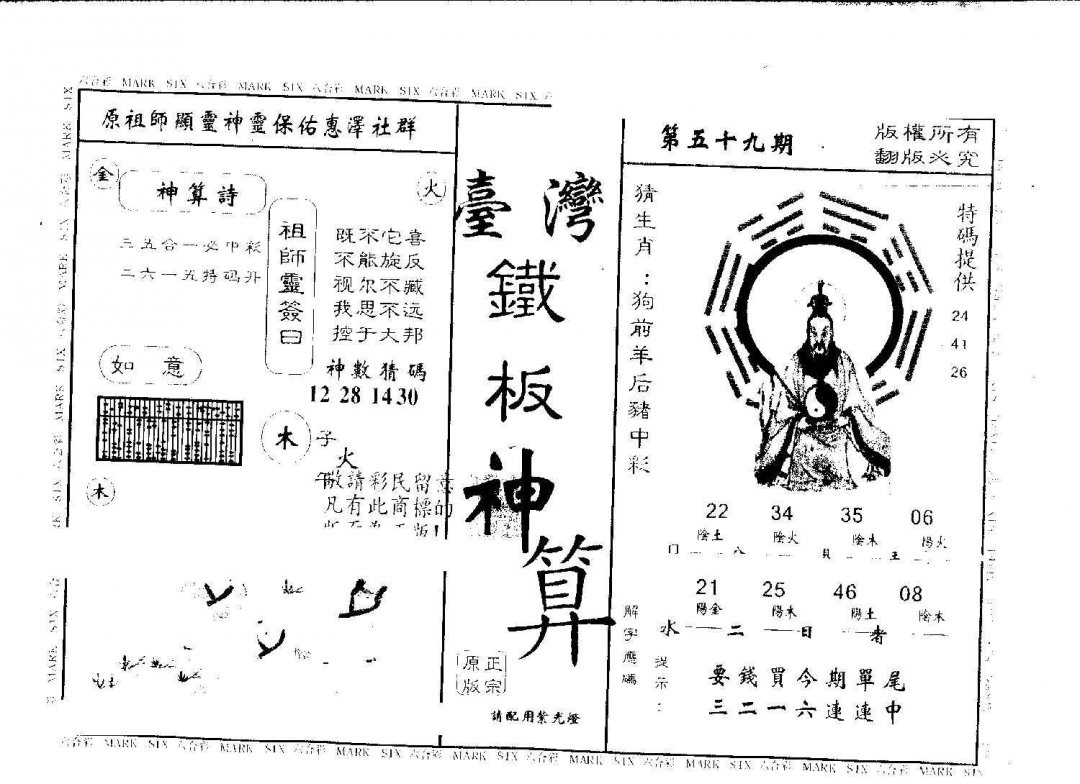 六合彩 MARK SIX 六合彩 MARK SIX 六合彩 MARK SIX 六合彩 MARK SIX
原祖師顯靈神靈保佑惠澤社群
金
神算詩
火
三五合一必中彩
二六一五特码升
祖師靈簽曰
既不它喜
不能旋反
视尔不臧
我思不远
控于大邦
神數猜碼
12 28 14 30
如意
木
子
火
木
午
敬請彩民留意
凡有此商標的
臺灣
鐵
板
神
算
正宗
原版
請配用紫光燈
第五十九期
版權所有
翻版必究
猜生肖：狗前羊后豬中彩
特碼提供
24
41
26
22 34 35 06
陰土 陰火 陰木 陽火
门 八 貝 王
21 25 46 08
陽金 陽木 陽土 陰木
水 二 日 者
解字應碼
提示：
要錢買今期單尾
三二一六連連中
六合彩 MARK SIX 六合彩 MARK SIX 六合彩 MARK SIX 六合彩 MARK SIX 六合彩 MARK SIX 六合彩 MARK SIX 六合彩 MARK SIX 六合彩 MARK SIX